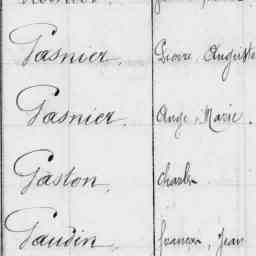 Gasnier, Pierre Auguste
Gasnier, Ange, Marie.
Gaston, Charles
Gaudin, François, Jean